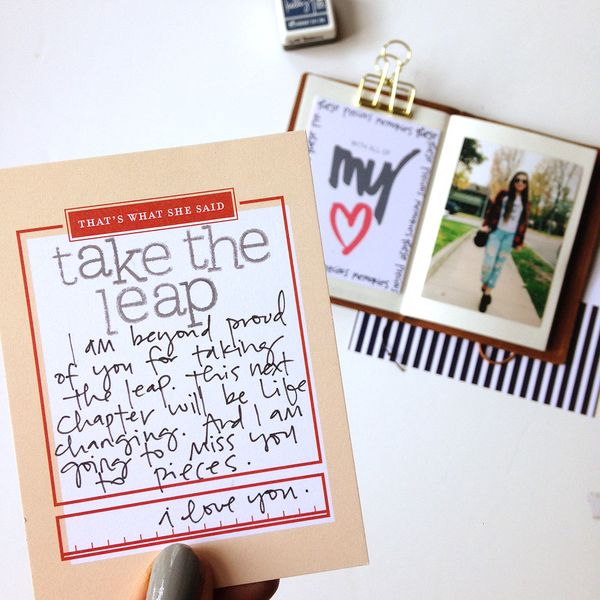 THAT'S WHAT SHE SAID
take the
leap
I am beyond proud
of you for taking
the leap. This next
chapter will be life
changing. And I am
going to miss you
to pieces.
i love you.
WITH ALL OF
my
these precious memories